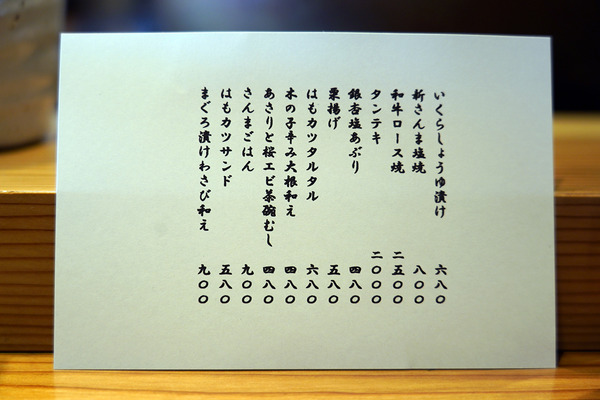 いくらしょうゆ漬け 六八〇
新さんま塩焼 八〇〇
和牛ロース焼 二五〇〇
タンテキ 二〇〇〇
銀杏塩あぶり 四八〇
栗揚げ 五八〇
はもカツタルタル 六八〇
木の子辛み大根和え 四八〇
あさりと桜エビ茶碗むし 四八〇
さんまごはん 九〇〇
はもカツサンド 五八〇
まぐろ漬けわさび和え 九〇〇